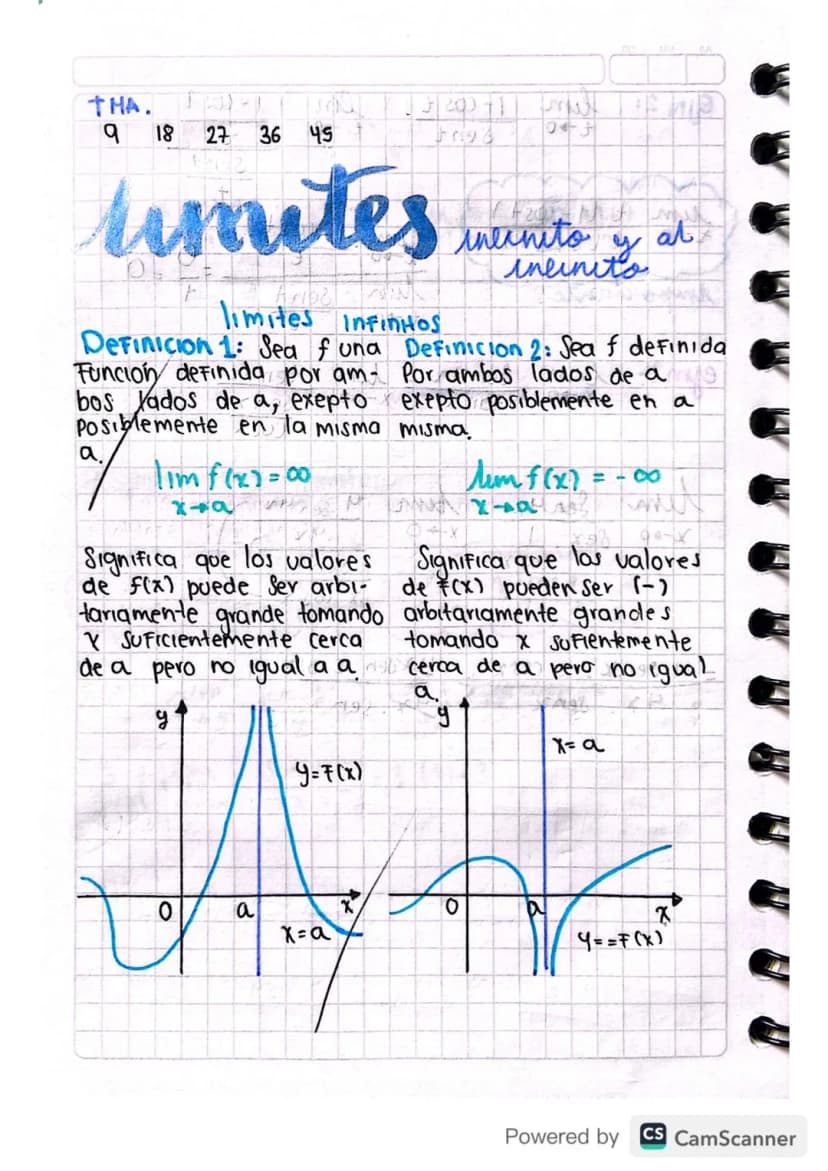 THA.
9 18 27 36 45
límites infinito y al
infinito
limites INFINITOS
DEFINICION 1: Sea f una
Función definida por am-
bos lados de a, exepto
posiblemente en la misma
a.
lim f(x) = ∞
x→a
Significa que los valores
de f(x) puede ser arbi-
tariamente grande tomando
x suficientemente cerca
de a pero no igual a a.
y
y=f(x)
0 a x
x=a
DEFINICION 2: Sea f definida
Por ambos lados de a
exepto posiblemente en a
misma.
lim f(x) = -∞
x→a
Significa que los valores
de f(x) pueden ser (-)
arbitariamente grandes
tomando x sufientemente
cerca de a pero no igual
a.
y
x=a
0 a x
y==f(x)
Powered by CS CamScanner